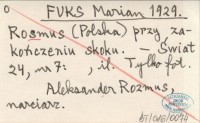 0
FUKS Marian 1929.
Rozmus (Polska) przy za-
kończeniu skoku. – „Świat"
24, nr 7: , il. Tylko fot.
Aleksander Rozmus,
narciarz.
BT/016/0074